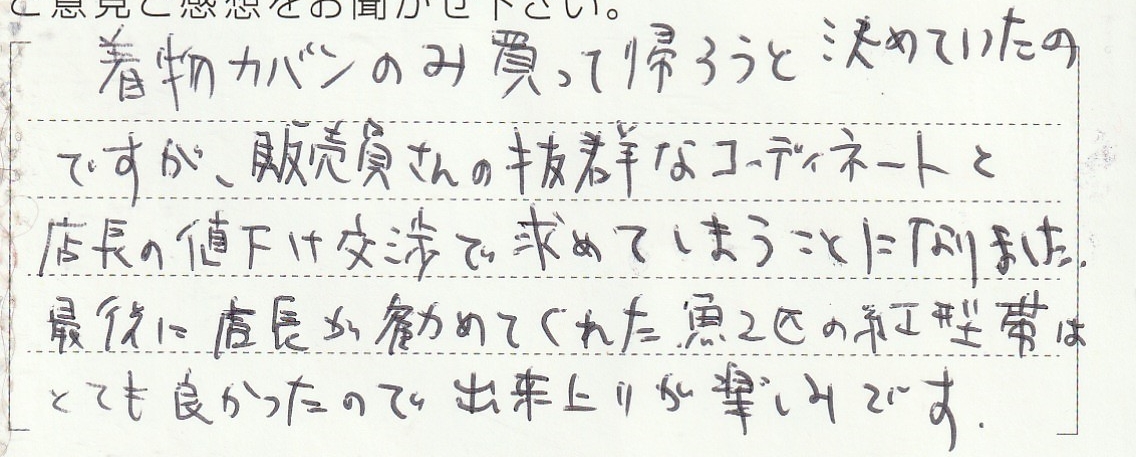 ご意見ご感想をお聞かせ下さい。
着物カバンのみ買って帰ろうと決めていたの
ですが、販売員さんの抜群なコーディネートと
店長の値下け交渉で求めてしまうことになりました.
最後に店長が勧めてくれた魚2匹の紅型帯は
とても良かったので出来上りが楽しみです.